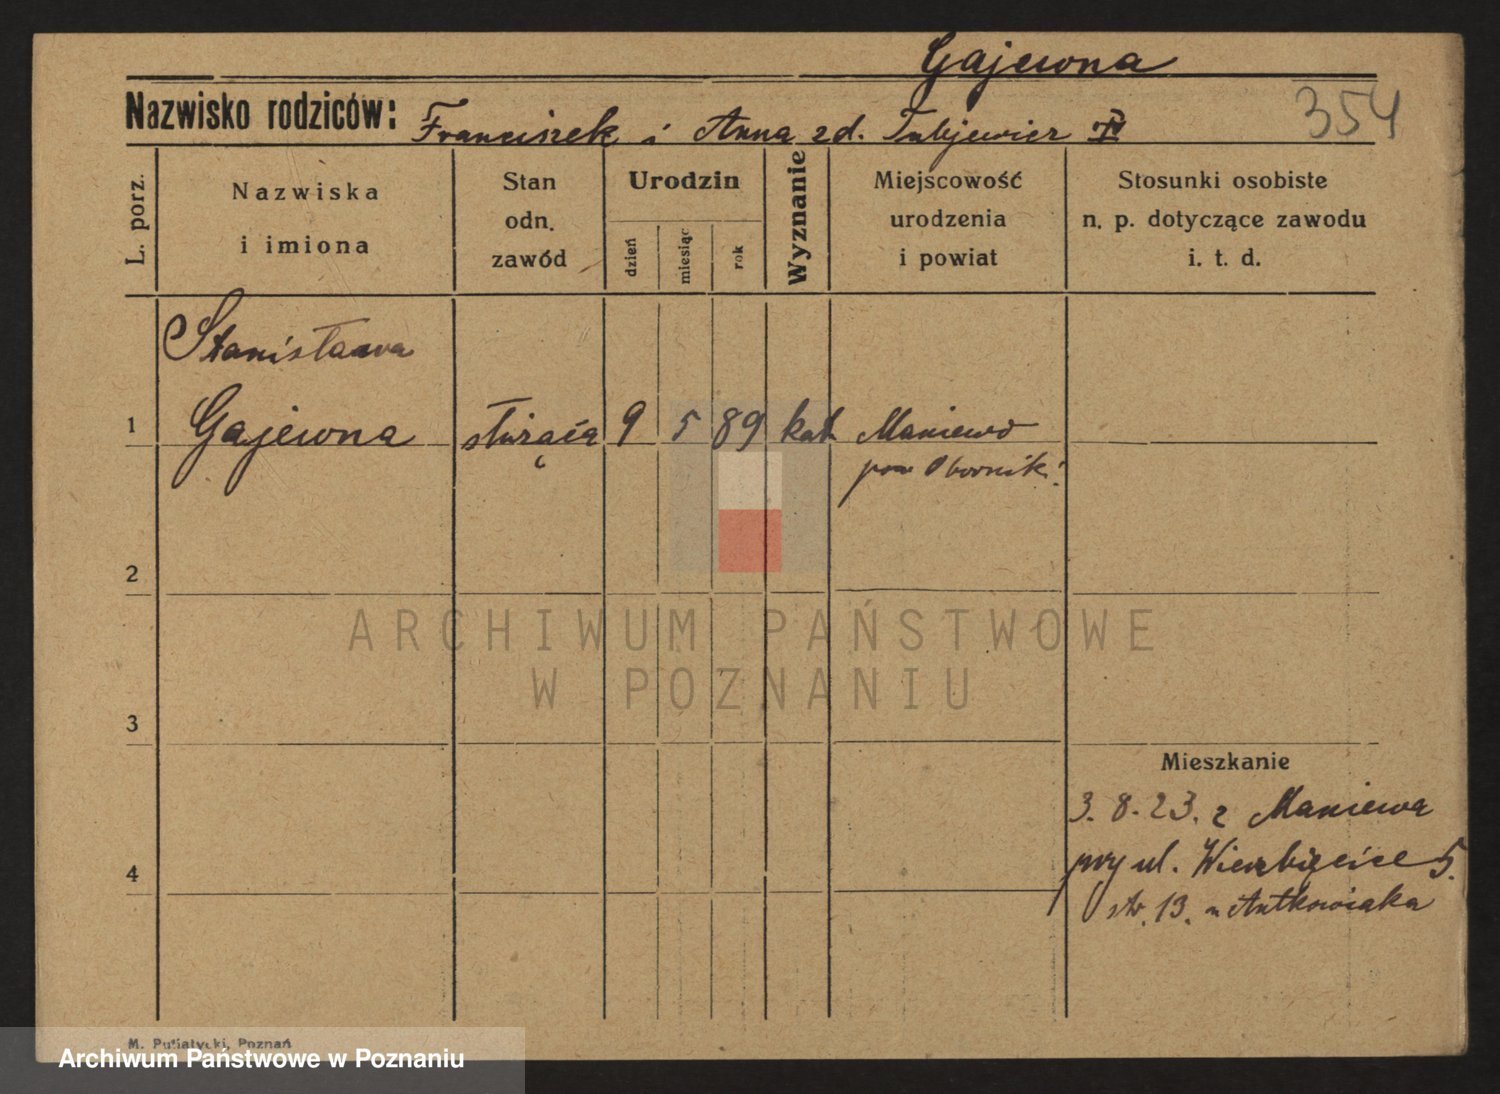 Gajewna
354
Nazwisko rodziców: Franciszek i Anna zd.
L. porz.
Nazwiska
i imiona
Stan
odn.
zawód
Urodzin
dzień
miesiąc
rok
Wyznanie
Miejscowość
urodzenia
i powiat
Stosunki osobiste
n. p. dotyczące zawodu
i. t. d.
Stanisława
1 Gajewna służąca 9 5 89 kat Maniewo
pow Obornik
2
ARCHIWUM PAŃSTWOWE
W POZNANIU
3
Mieszkanie
3. 8. 23. z Maniewa
przy ul. Wierzbięcice 5.
4
13. u Antkowiaka
M. Putiatycki, Poznań
Archiwum Państwowe w Poznaniu